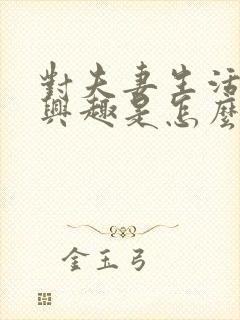 對夫妻生活
興趣是怎麼
金玉弓